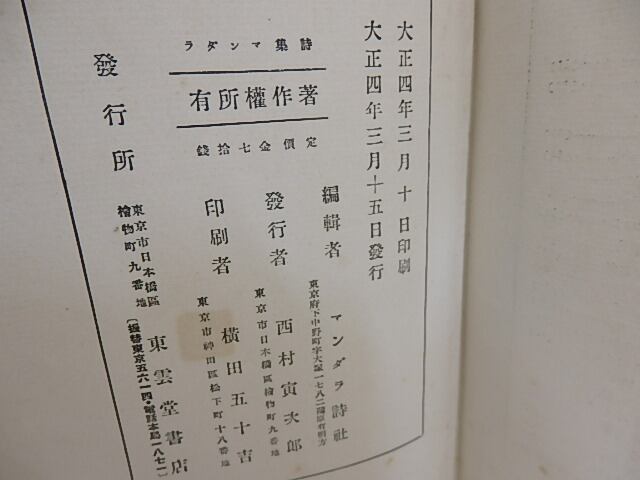 大正四年三月十日印刷
大正四年三月十五日發行
詩集マンダラ
著作權所有
定價金七拾錢
編輯者
東京府下中野町字大塚一七八二蒲原有明方
マンダラ詩社
發行者
東京市日本橋區檜物町九番地
西村寅次郎
印刷者
東京市神田區松下町十八番地
横田五十吉
發行所
東京市日本橋區
檜物町九番地
東雲堂書店
〔振替東京五六一四・電話本局一八七一〕